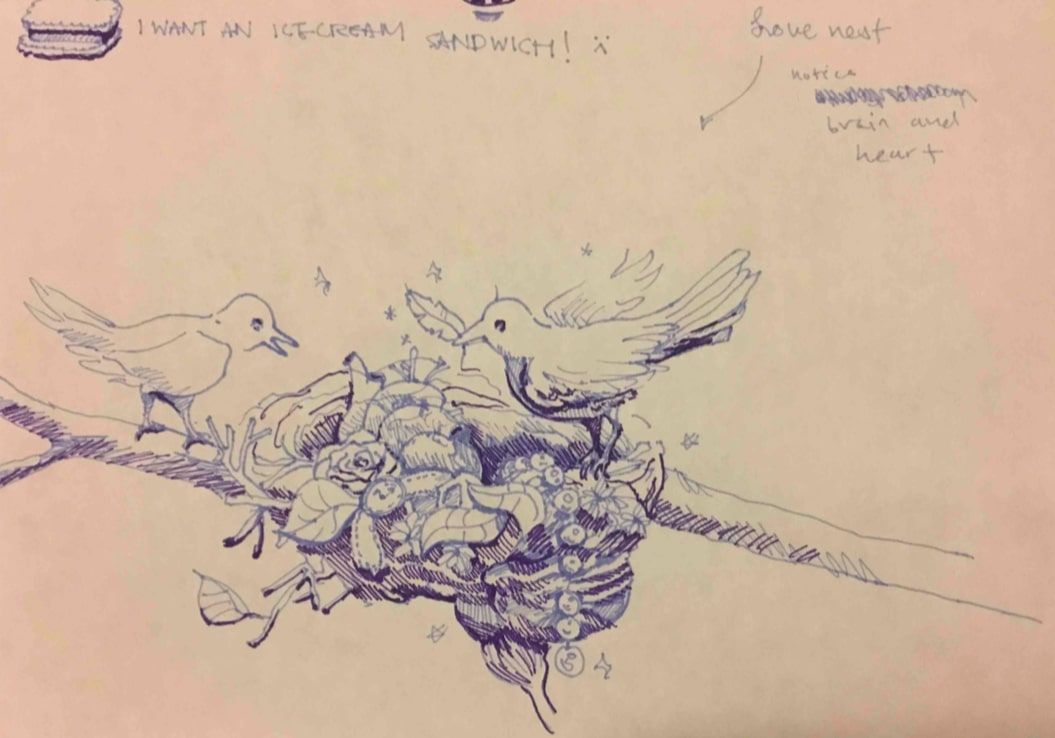 I WANT AN ICE-CREAM SANDWICH!
Love nest
notice
brain and
heart